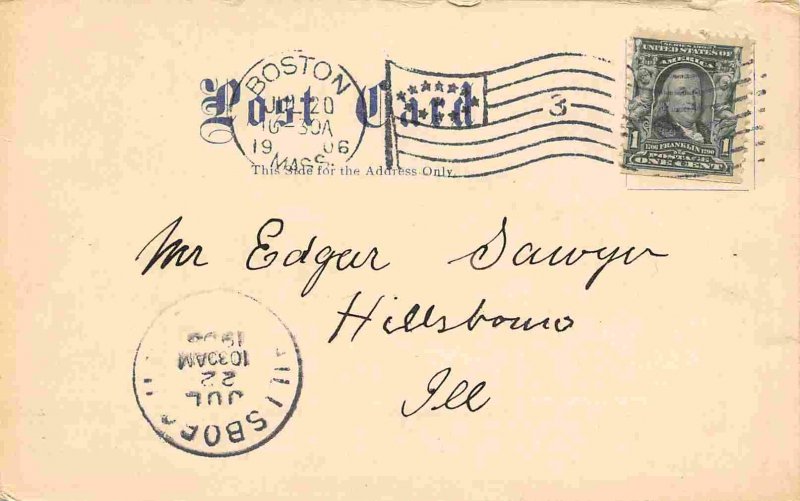 BOSTON
JUL 20
10-30A
1906
MASS.
3
Post Card
This Side for the Address Only.
SERIES 1902
UNITED STATES OF
AMERICA
1706 FRANKLIN 1790
1 POSTAGE 1
ONE CENT
Mr Edgar Sawyer
Hillsboro
Ill
HILLSBORO
JUL
22
1030AM
1906